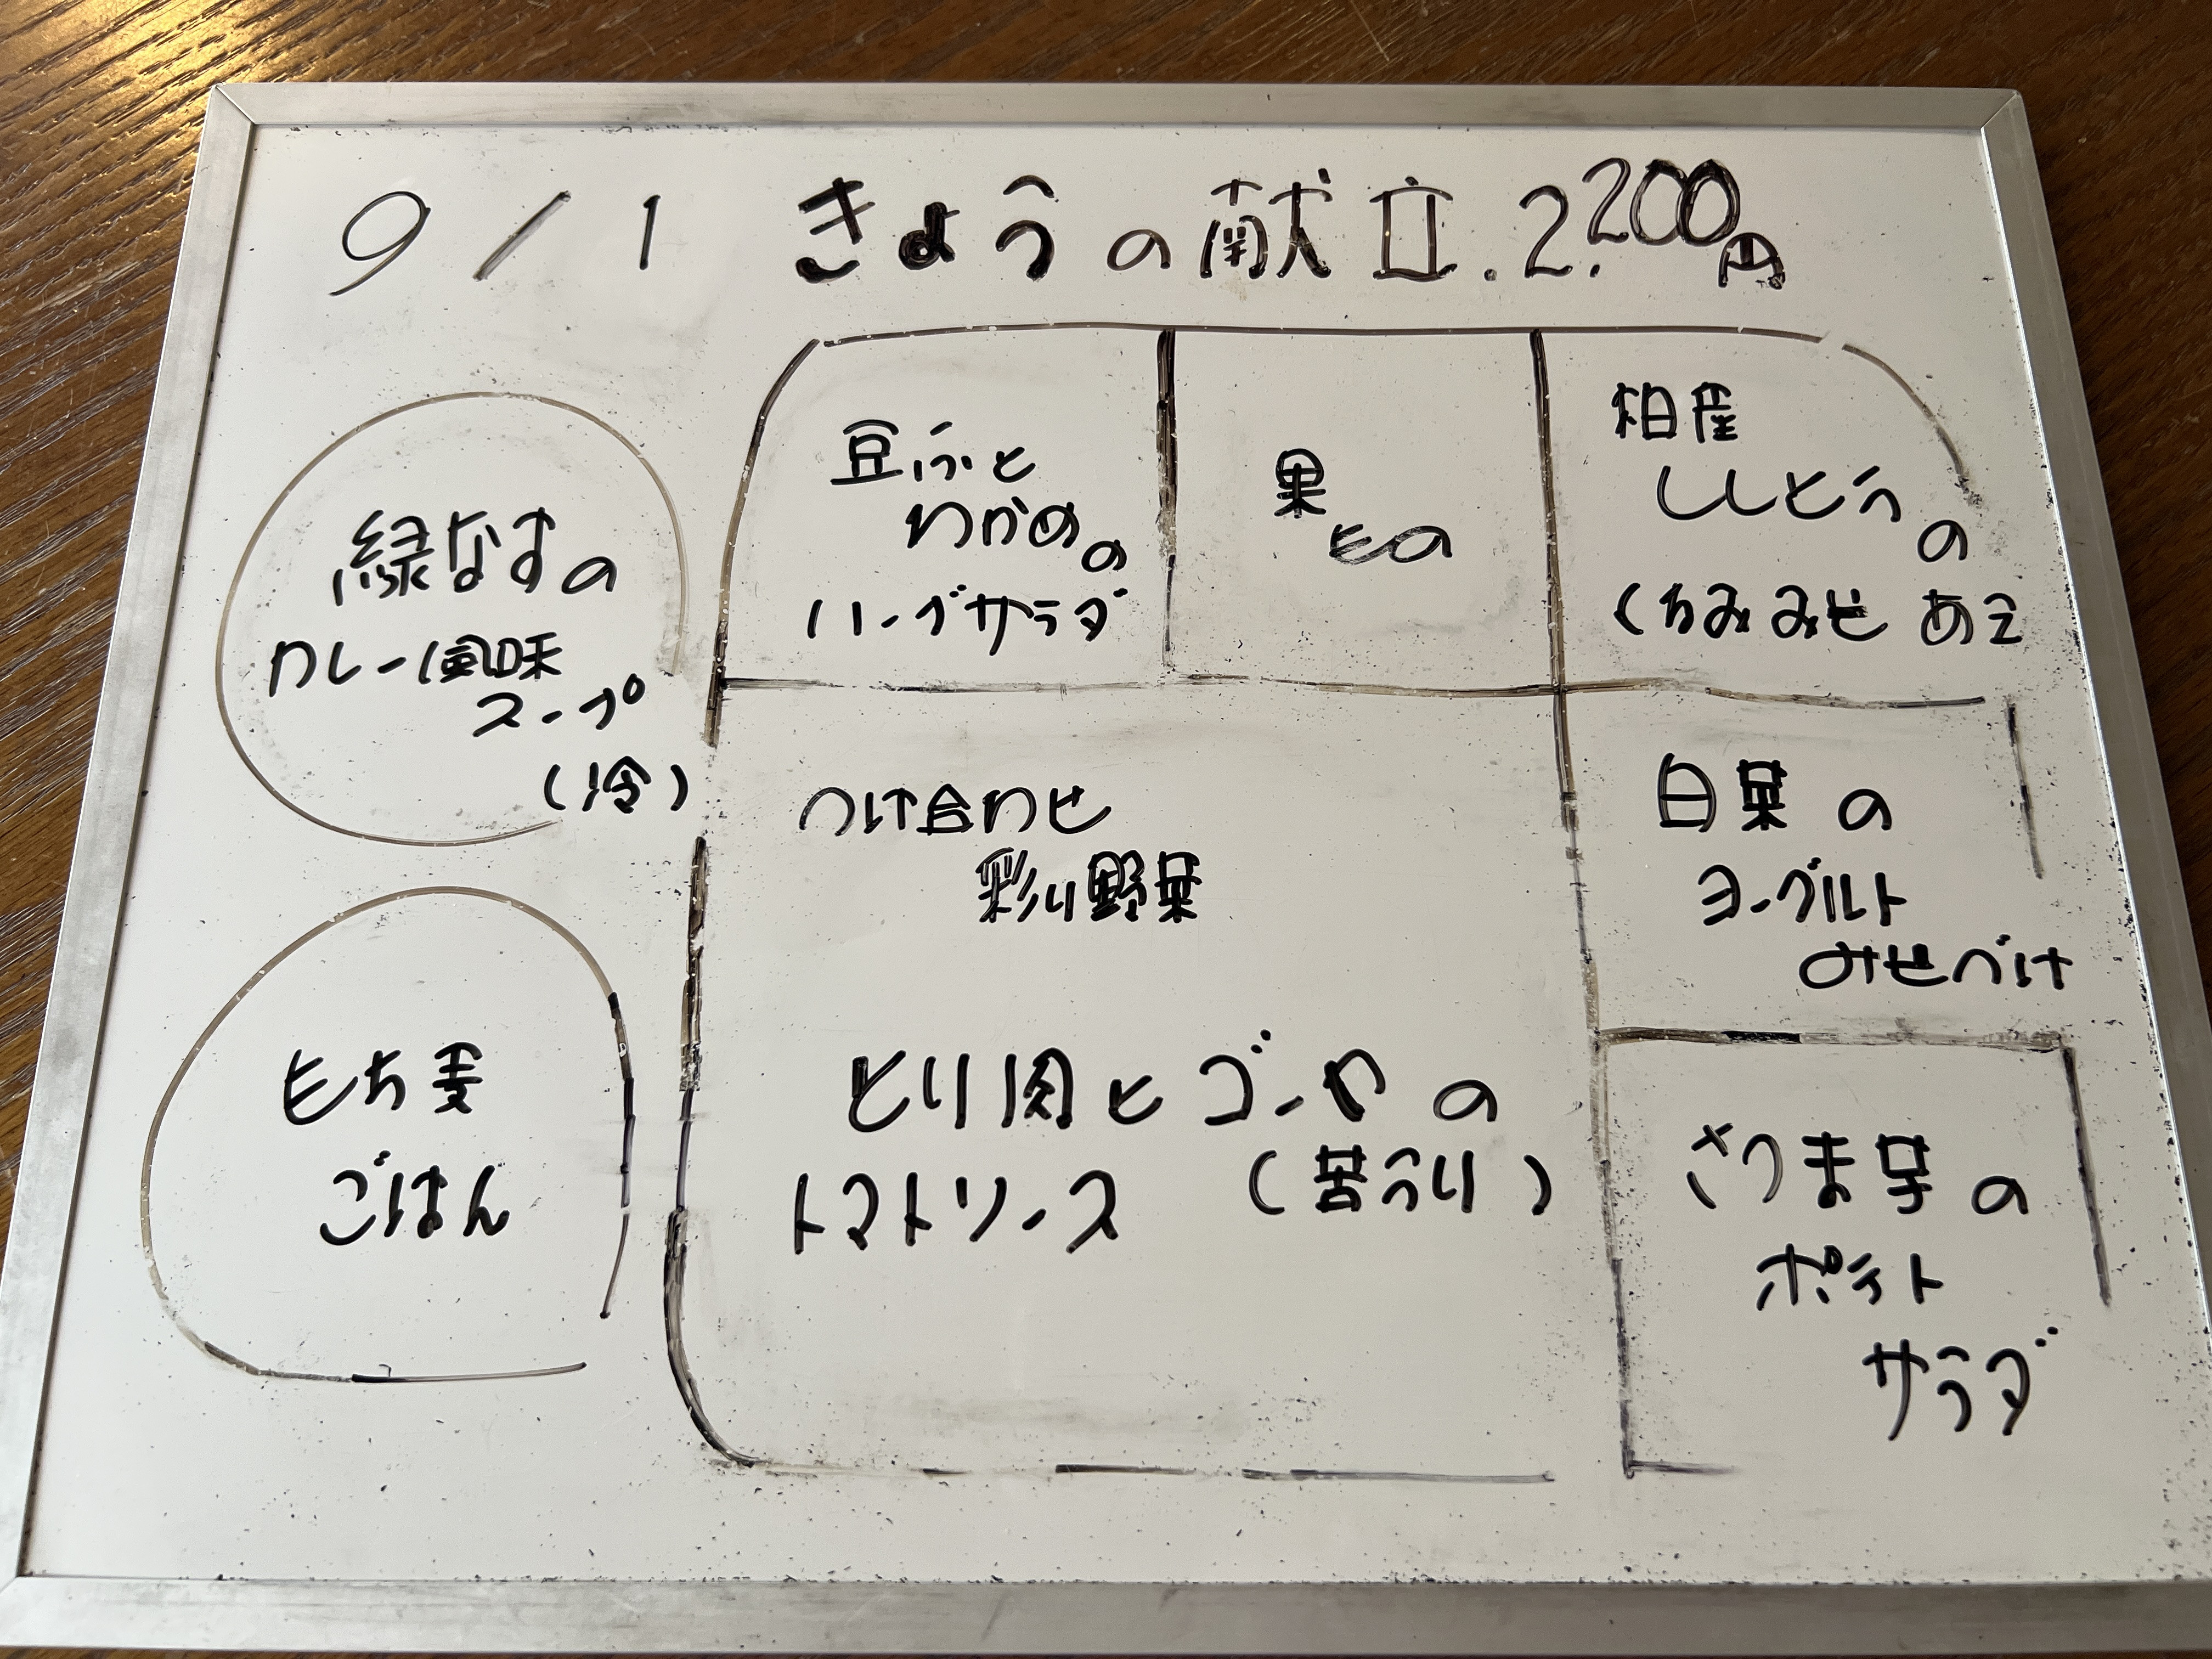 9/1 きょうの献立.2.200円
緑なすの
カレー風味
スープ
(冷)
豆ふと
わかめの
ハーブサラダ
果
もの
柏産
ししとう
の
くるみみそ あえ
つけ合わせ
彩り野菜
とり肉とゴーヤの
(苦うり)
トマトソース
白菜の
ヨーグルト
みそづけ
もち麦
ごはん
さつま芋の
ポテト
サラダ